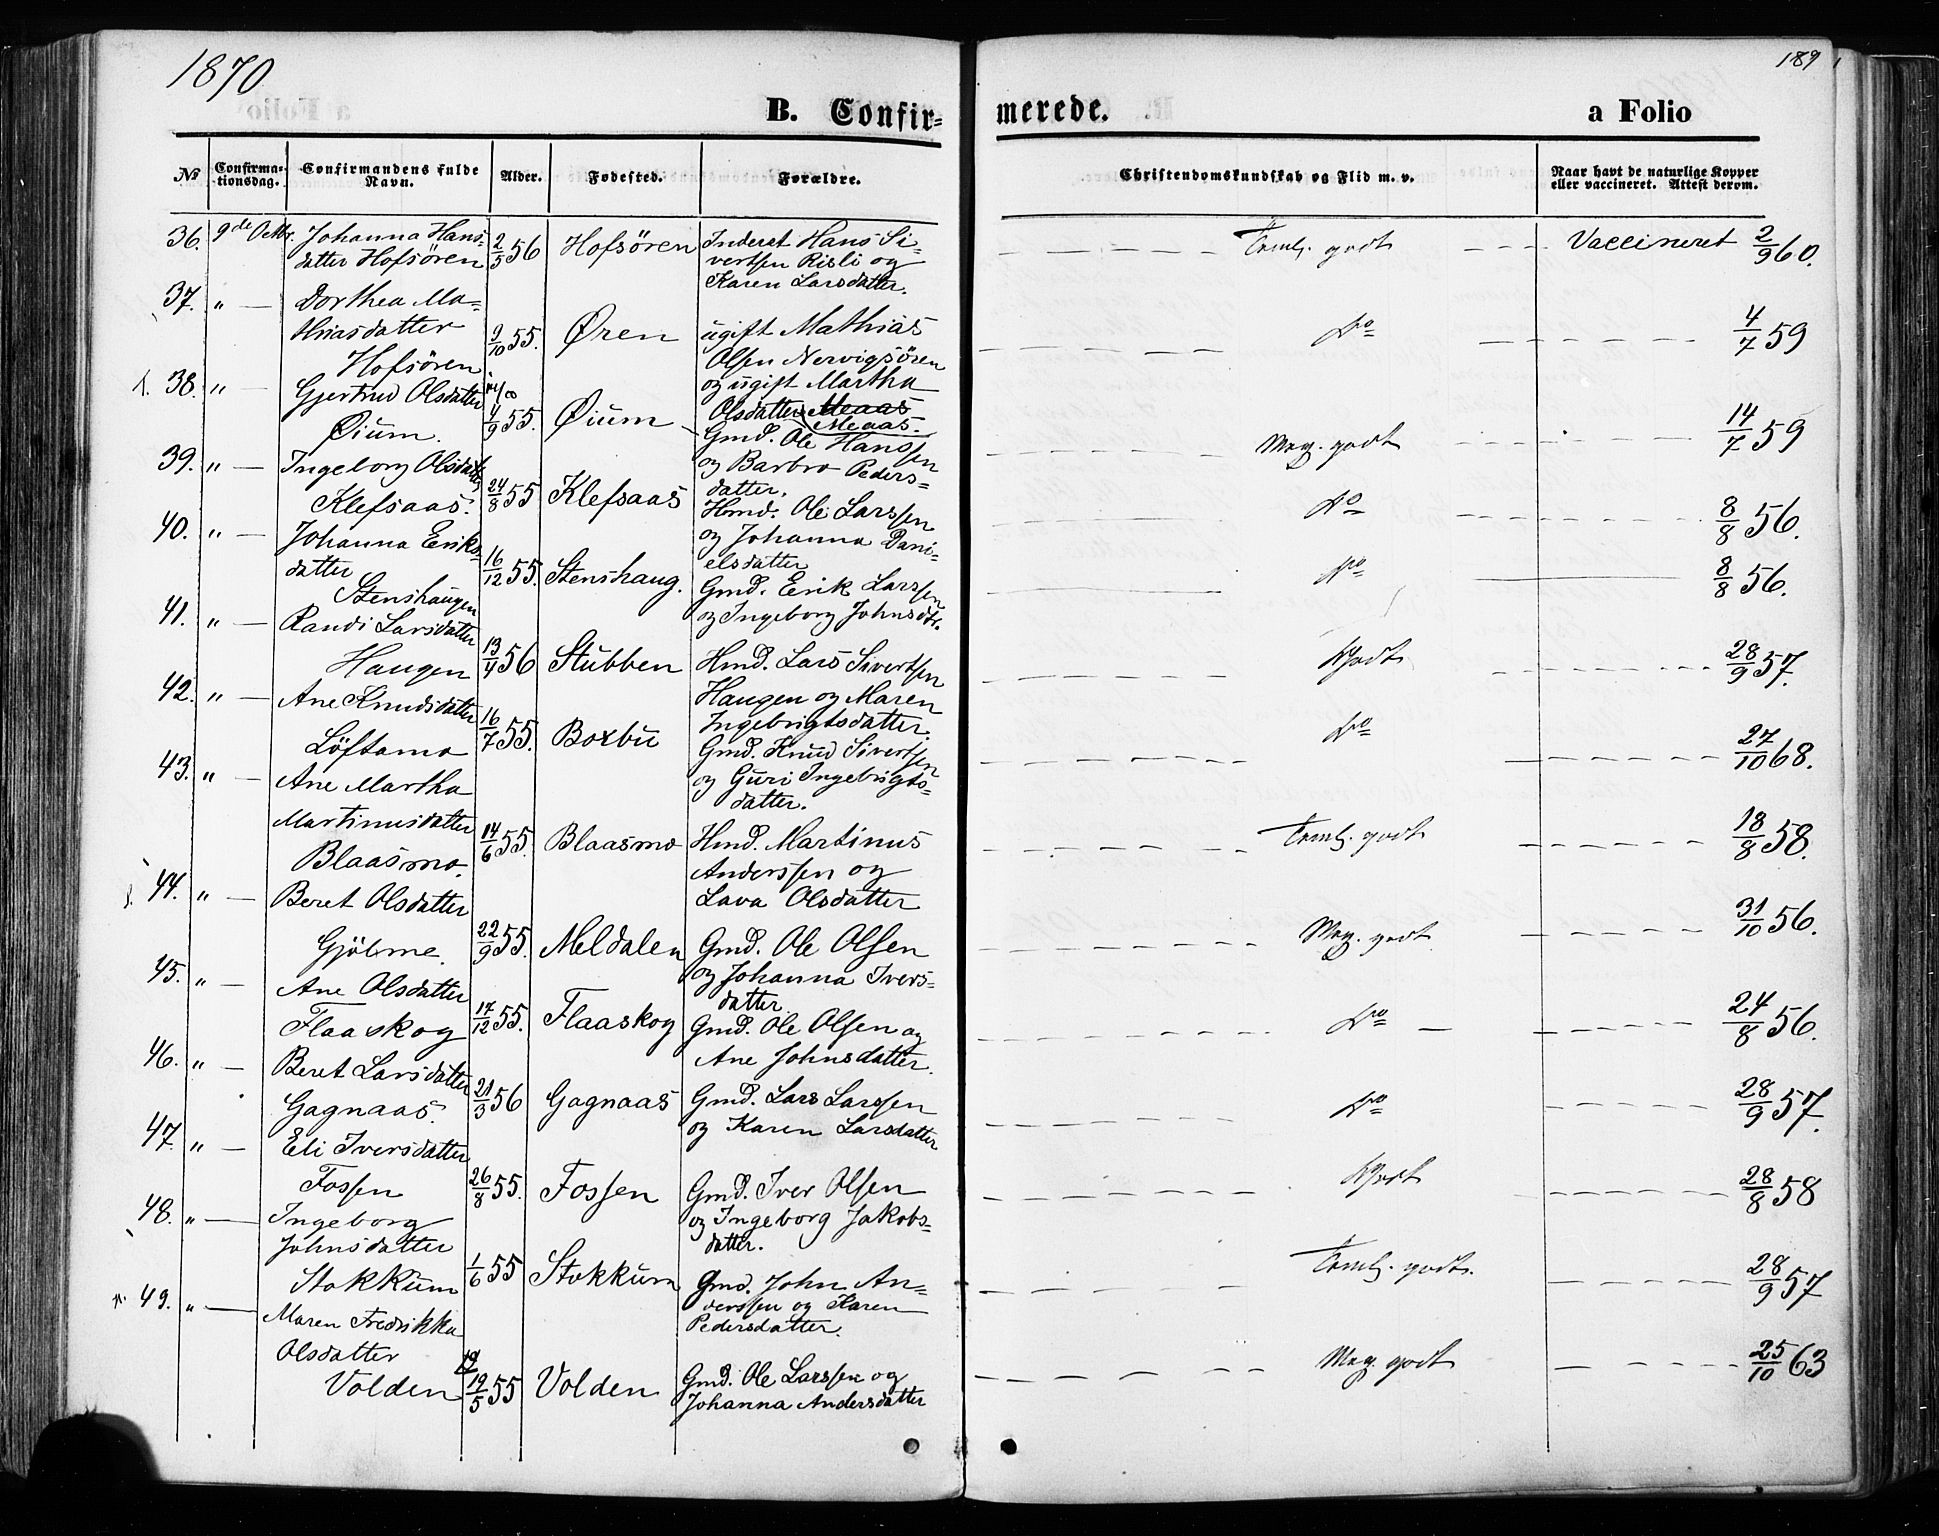 1870
189
B. Confir-
merede.
a Folio
No
Confirma-
tionsdag.
Confirmandens fulde
Navn.
Alder.
Fødested.
Forældre.
Christendomskundskab og Flid m. v.
Naar havt de naturlige Kopper
eller vaccineret. Attest derom.
36. 9de Octbr. Johanna Hans-
datter Hofsören
2/5 56 Hofsören
Inderst Hans Si-
vertsen Risli og
Karen Larsdatter.
Temlg. godt
Vaccineret 2/9 60.
37. " Dorthea Ma-
thiasdatter
Hofsören.
9/10 55. Øren
ugift Mathias
Olsen Nervigsören
og ugift Martha
Olsdatter Meaas
Meaas.
do
4/7 59
38. " Gjertrud Olsdatter
Øium.
4/9 55. Øium
Gmd. Ole Hanssen
og Barbro Peders-
datter.
Meg. godt
14/7 59
39. " Ingeborg Olsdatter
Klefsaas.
24/8 55 Klefsaas
Hmd. Ole Larssen
og Johanna Dani-
elsdatter
do
8/8 56.
40. " Johanna Eriks-
datter
Stenshaugen
16/12 55. Stenshaug.
Gmd. Erik Larssen
og Ingeborg Johnsdtr.
do
8/8 56.
41. " Randi Larsdatter
Haugen
13/4 56 Stubben
Hmd. Lars Sivertsen
Haugen og Maren
Ingebrigtsdatter.
Godt
28/9 57.
42. " Ane Knudsdatter
Löftamo
16/7 55. Boxbu
Gmd. Knud Sivertsen
og Guri Ingebrigts-
datter.
do
27/10 68.
43. " Ane Martha
Martinusdatter
Blaasmo.
14/6 55. Blaasmo
Hmd. Martinus
Anderssen og
Lava Olsdatter
Temlg. godt
18/8 58.
44. " Beret Olsdatter
Gjölme.
22/9 55. Meldalen
Gmd. Ole Olsen
og Johanna Ivers-
datter
Meg. godt
31/10 56.
45. " Ane Olsdatter
Flaaskog
17/12 55. Flaaskog
Gmd. Ole Olsen og
Ane Johnsdatter.
do
24/8 56.
46. " Beret Larsdatter
Gagnaas.
21/3 56 Gagnaas
Gmd. Lars Larssen
og Karen Larsdatter
do
28/9 57.
47. " Eli Iversdatter
Fossen
26/8 55. Fossen
Gmd. Iver Olsen
og Ingeborg Jakobs-
datter.
Godt
28/8 58
48. " Ingeborg
Johnsdatter
Stokkum
1/6 55 Stokkum
Gmd. John An-
derssen og Karen
Pedersdatter.
Temlg. godt.
28/9 57
49. " Maren Fredrikka
Olsdatter
Volden
19/5 55 Volden
Gmd. Ole Larssen og
Johanna Andersdatter
Meg. godt
25/10 63